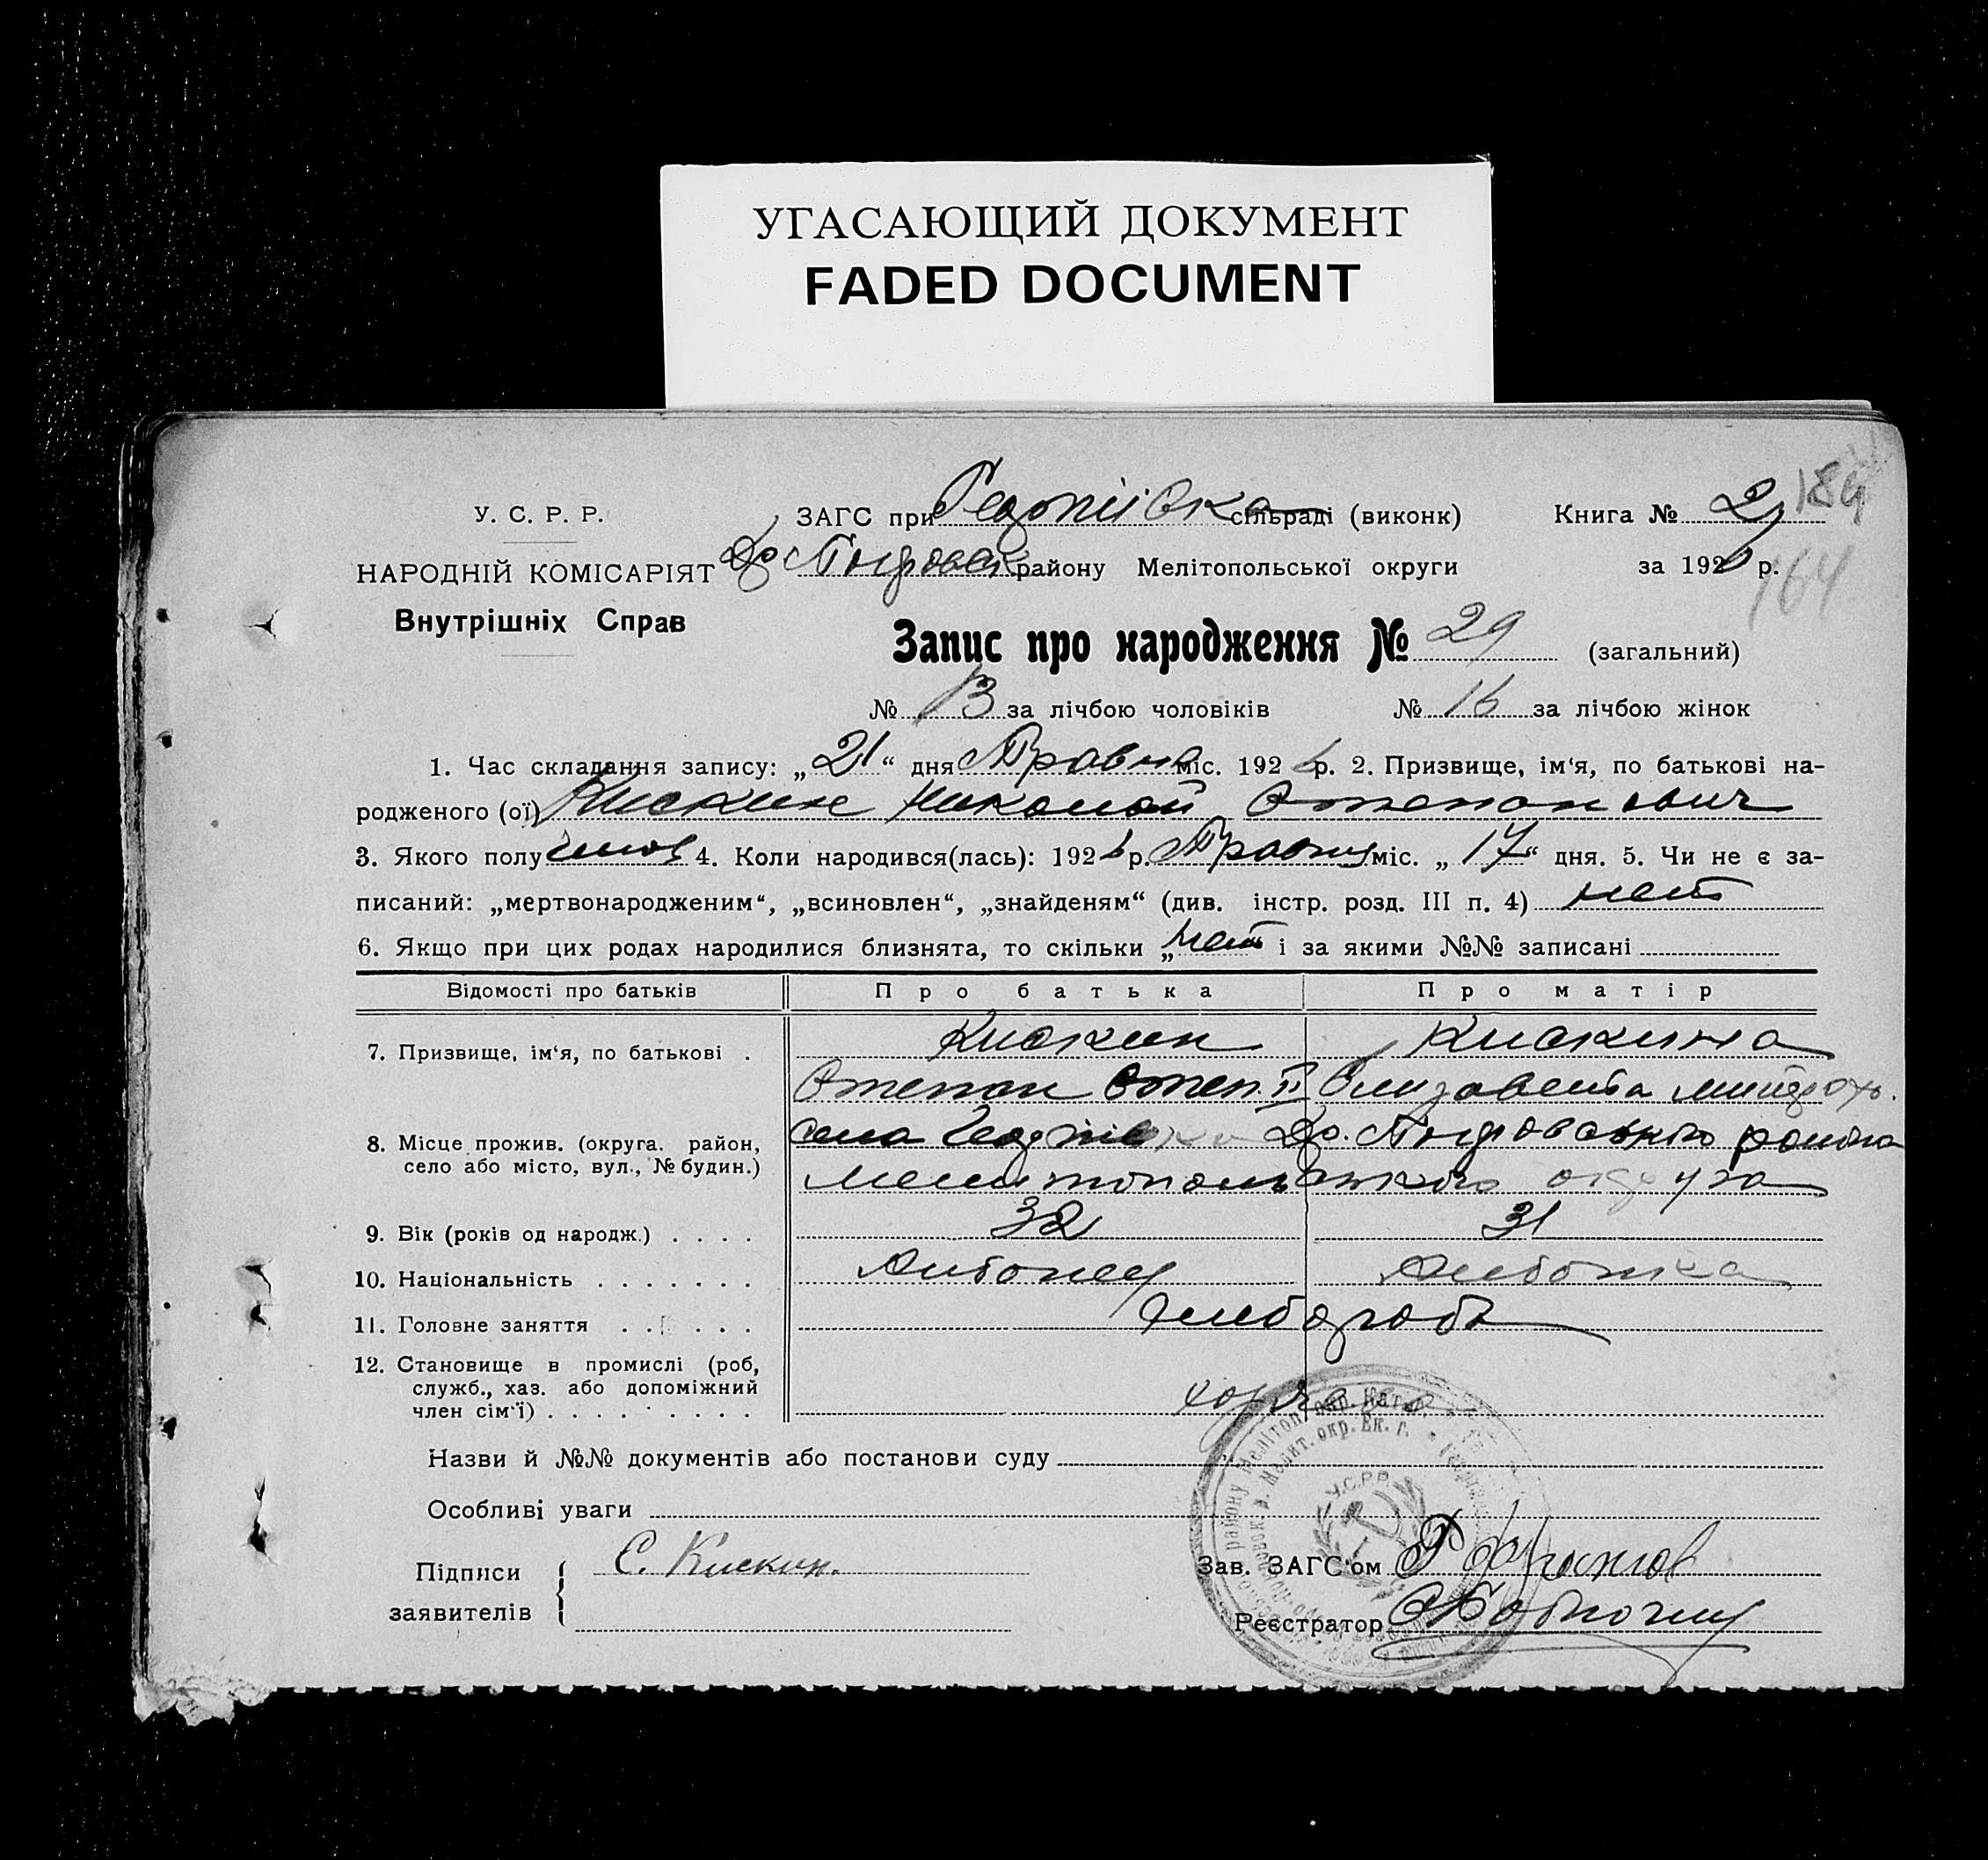 УГАСАЮЩИЙ ДОКУМЕНТ
FADED DOCUMENT
189
164
У. С. Р. Р.
НАРОДНІЙ КОМІСАРІЯТ
Внутрішніх Справ
ЗАГС при сільраді (виконк) Книга № 2
району Мелітопольської округи за 1926 р.
Запис про народження № 29 (загальний)
№ 13 за лічбою чоловіків № 16 за лічбою жінок
1. Час складання запису: „21“ дня Травня міс. 1926 р. 2. Призвище, ім'я, по батькові на-
родженого (ої) Кискин Николай Степанович
3. Якого полу 4. Коли народився(лась): 1926 р. Травня міс. „17“ дня. 5. Чи не є за-
писаний: „мертвонародженим“, „всиновлен“, „знайденям“ (див. інстр. розд. III п. 4) нет
6. Якщо при цих родах народилися близнята, то скільки „нет“ і за якими №№ записані
Відомості про батьків Про батька Про матір
7. Призвище, ім'я, по батькові . Кискин Кискина
Степан Степ. Елизавета митроф.
8. Місце прожив. (округа. район,
село або місто, вул., № будин.)
села района
мелитопольського округа
9. Вік (років од народж.) . . . . 32 31
10. Національність . . . . . . .
11. Головне заняття . . . . . . хлебороб
12. Становище в промислі (роб,
служб., хаз. або допоміжний
член сім'ї) . . . . . . . . .
Назви й №№ документів або постанови суду
Особливі уваги
У.С.Р.Р.
Підписи
заявителів
С. Кискин.
Зав. ЗАГС'ом
Реєстратор